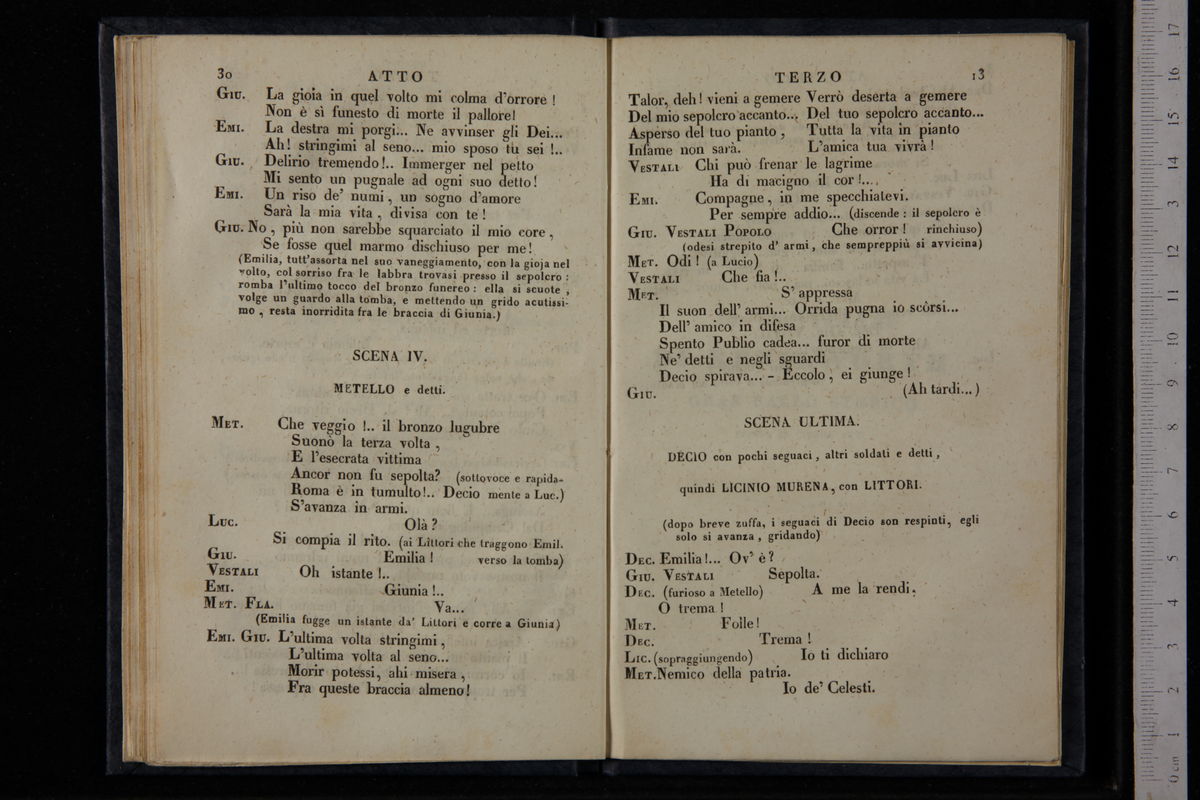 30 ATTO
GIU. La gioia in quel volto mi colma d'orrore !
Non è sì funesto di morte il pallore!
EMI. La destra mi porgi... Ne avvinser gli Dei...
Ah! stringimi al seno... mio sposo tu sei !..
GIU. Delirio tremendo!.. Immerger nel petto
Mi sento un pugnale ad ogni suo detto!
EMI. Un riso de' numi, un sogno d'amore
Sarà la mia vita, divisa con te !
GIU. No, più non sarebbe squarciato il mio core,
Se fosse quel marmo dischiuso per me!
(Emilia, tutt'assorta nel suo vaneggiamento, con la gioja nel
volto, col sorriso fra le labbra trovasi presso il sepolcro :
romba l'ultimo tocco del bronzo funereo : ella si scuote,
volge un guardo alla tomba, e mettendo un grido acutissi-
mo, resta inorridita fra le braccia di Giunia.)
SCENA IV.
METELLO e detti.
MET. Che veggio !.. il bronzo lugubre
Suonò la terza volta,
E l'esecrata vittima
Ancor non fu sepolta? (sottovoce e rapida-
Roma è in tumulto!.. Decio mente a Luc.)
S'avanza in armi.
LUC. Olà ?
Si compia il rito. (ai Littori che traggono Emil.
GIU. Emilia ! verso la tomba)
VESTALI Oh istante !..
EMI. Giunia !..
MET. FLA. Va...
(Emilia fugge un istante da' Littori e corre a Giunia)
EMI. GIU. L'ultima volta stringimi,
L'ultima volta al seno...
Morir potessi, ahi misera,
Fra queste braccia almeno!
TERZO 13
Talor, deh! vieni a gemere Verrò deserta a gemere
Del mio sepolcro accanto... Del tuo sepolcro accanto...
Asperso del tuo pianto, Tutta la vita in pianto
Infame non sarà. L'amica tua vivrà !
VESTALI Chi può frenar le lagrime
Ha di macigno il cor !...
EMI. Compagne, in me specchiatevi.
Per sempre addio... (discende : il sepolcro è
GIU. VESTALI POPOLO Che orror ! rinchiuso)
(odesi strepito d' armi, che sempreppiù si avvicina)
MET. Odi ! (a Lucio)
VESTALI Che fia !..
MET. S' appressa
Il suon dell' armi... Orrida pugna io scôrsi...
Dell' amico in difesa
Spento Publio cadea... furor di morte
Ne' detti e negli sguardi
Decio spirava... - Eccolo, ei giunge !
GIU. (Ah tardi...)
SCENA ULTIMA.
DECIO con pochi seguaci, altri soldati e detti,
quindi LICINIO MURENA, con LITTORI.
(dopo breve zuffa, i seguaci di Decio son respinti, egli
solo si avanza, gridando)
DEC. Emilia!... Ov' è ?
GIU. VESTALI Sepolta.
DEC. (furioso a Metello) A me la rendi,
O trema !
MET. Folle !
DEC. Trema !
LIC. (sopraggiungendo) Io ti dichiaro
MET. Nemico della patria.
Io de' Celesti.
0 cm 1 2 3 4 5 6 7 8 9 10 11 12 13 14 15 16 17